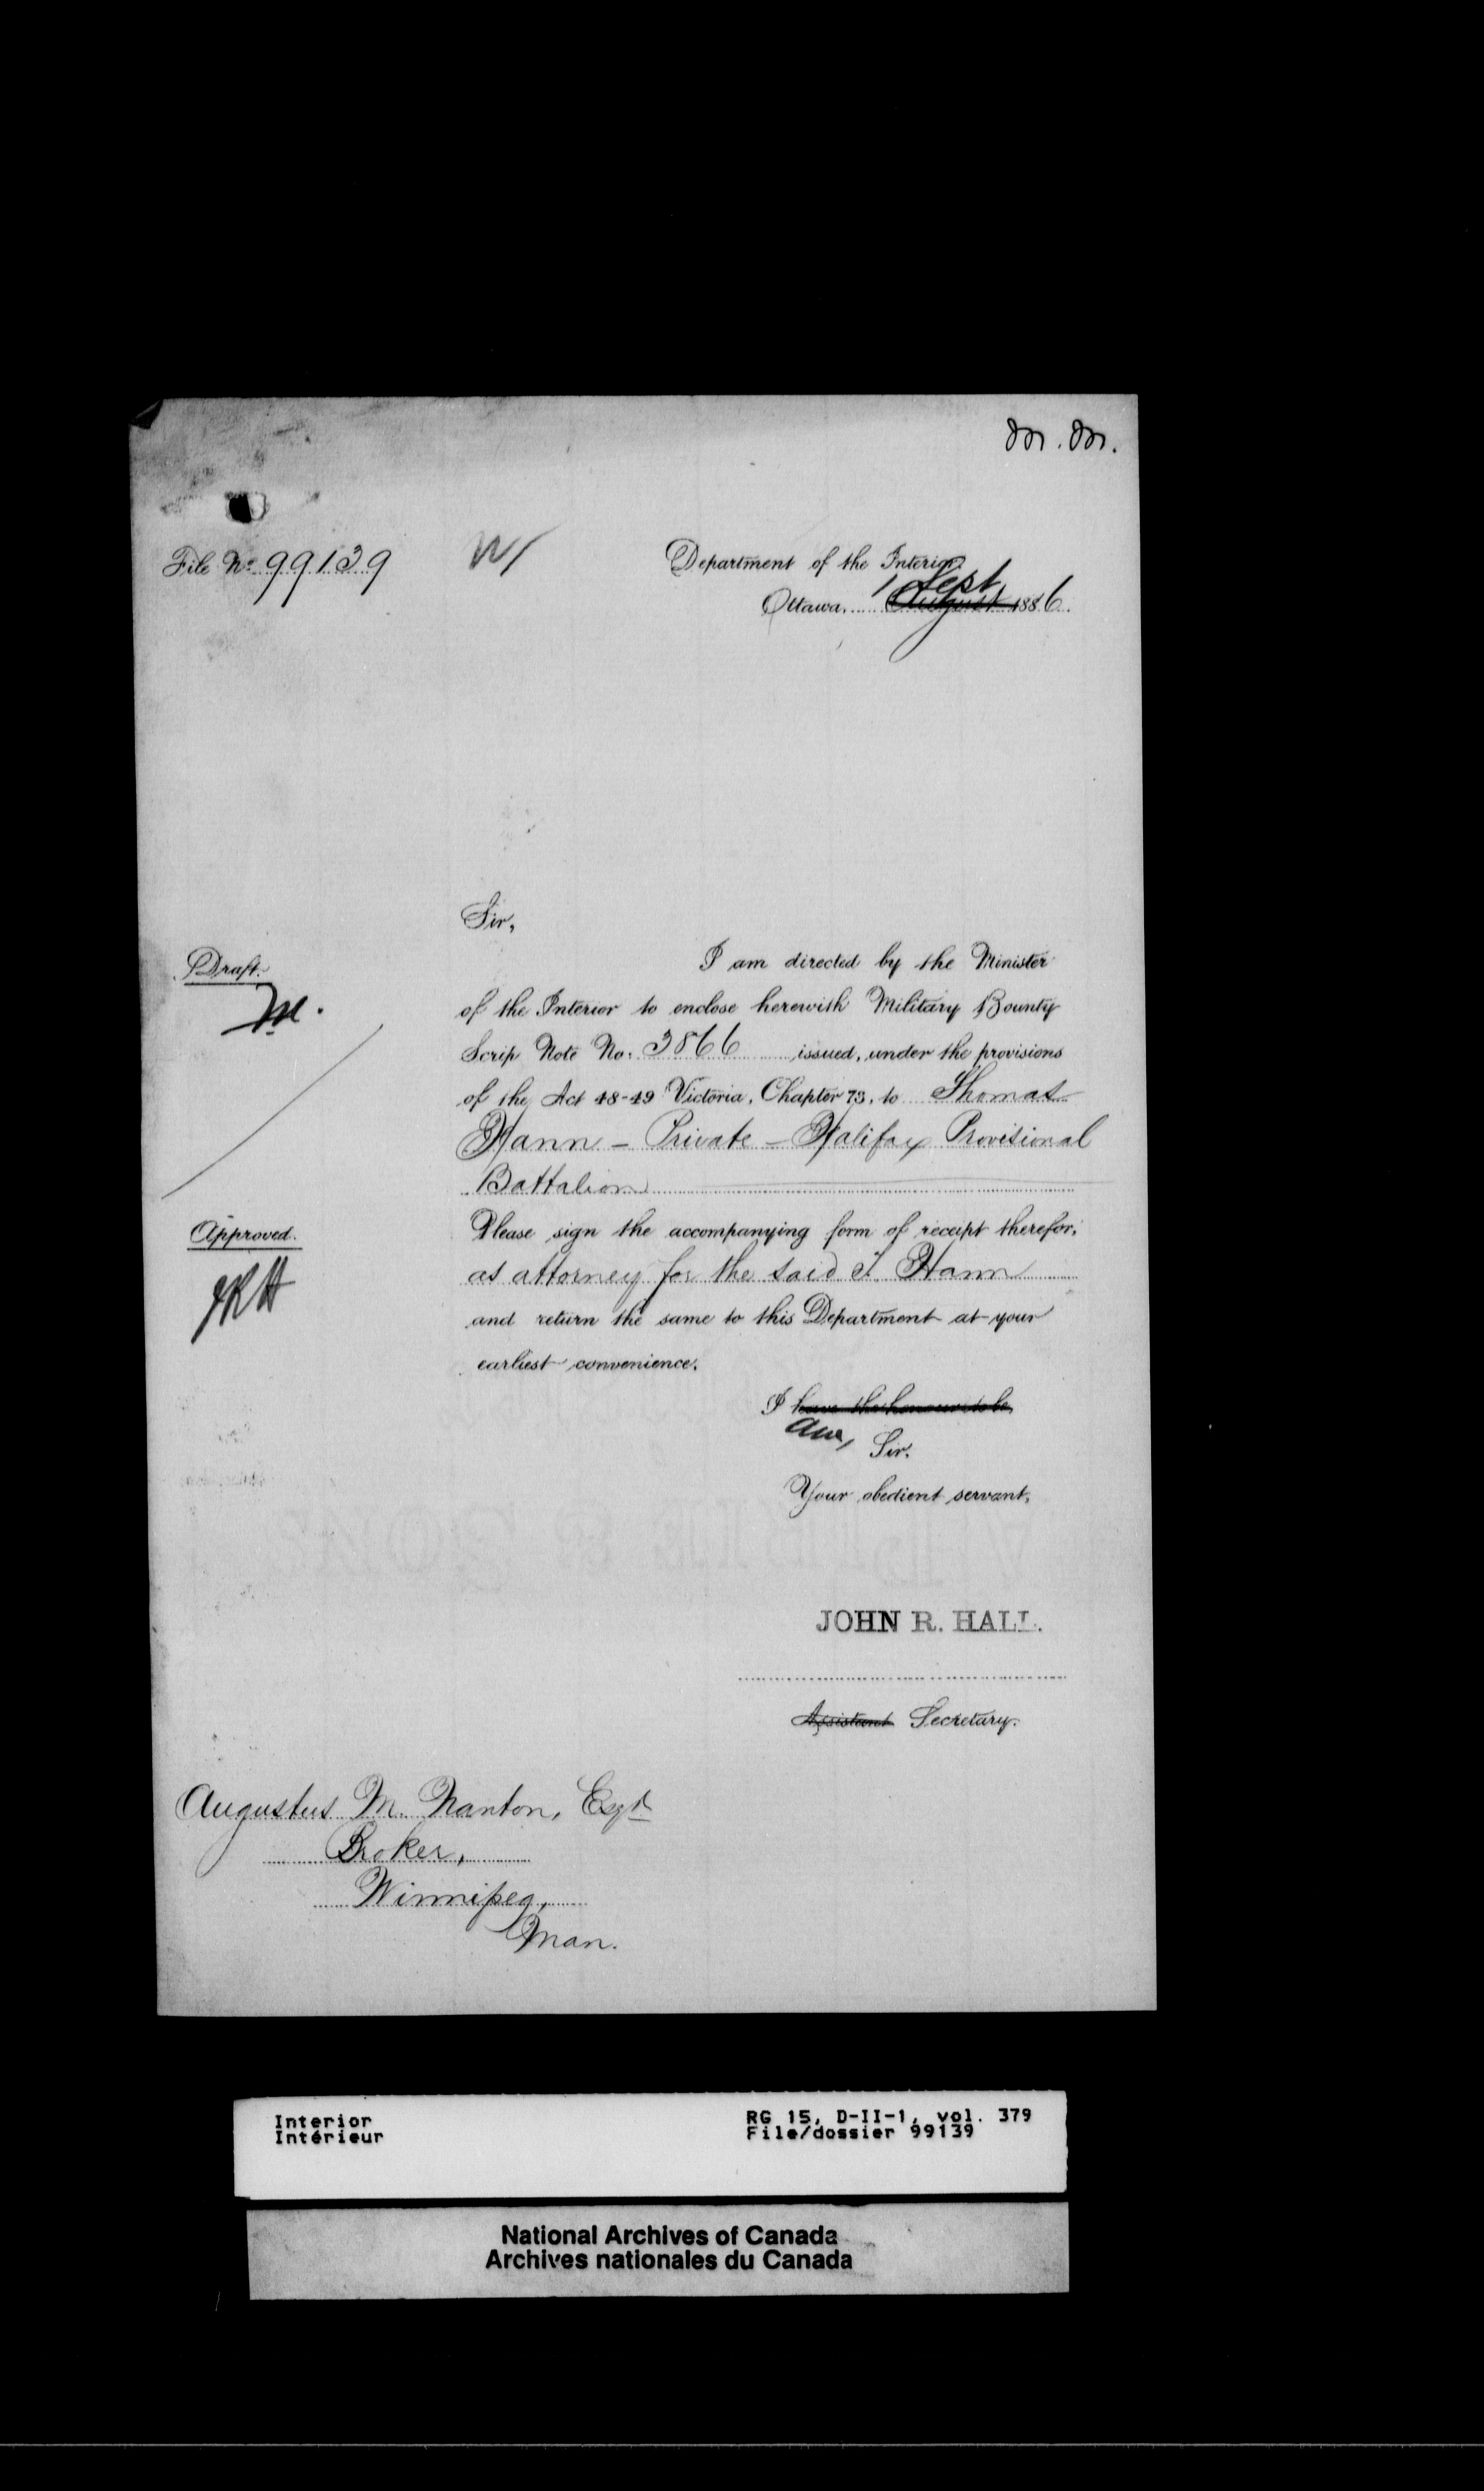 M. M.
File No. 99139
W/
Department of the Interior.
1 Sept
Ottawa, August 1886.
Sir,
Draft.
M.
I am directed by the Minister
of the Interior to enclose herewith Military Bounty
Scrip Note No. 3866 issued, under the provisions
of the Act 48-49 Victoria, Chapter 73, to Thomas
Hann - Private - Halifax Provisional
Battalion
Approved.
JRH
Please sign the accompanying form of receipt therefor,
as attorney for the said T. Hann
and return the same to this Department at your
earliest convenience.
I have the honour to be,
am, Sir,
Your obedient servant,
JOHN R. HALL.
Assistant Secretary.
Augustus M. Nanton, Esqr
Broker,
Winnipeg,
Man.
Interior
Intérieur
RG 15, D-II-1, vol. 379
File/dossier 99139
National Archives of Canada
Archives nationales du Canada